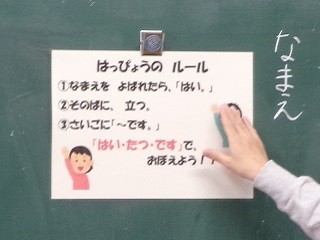 はっぴょうの ルール
①なまえを よばれたら、「はい。」
②そのばに、 立つ。
③さいごに「～です。」
「はい・たつ・です」で、
おぼえよう!
なまえ